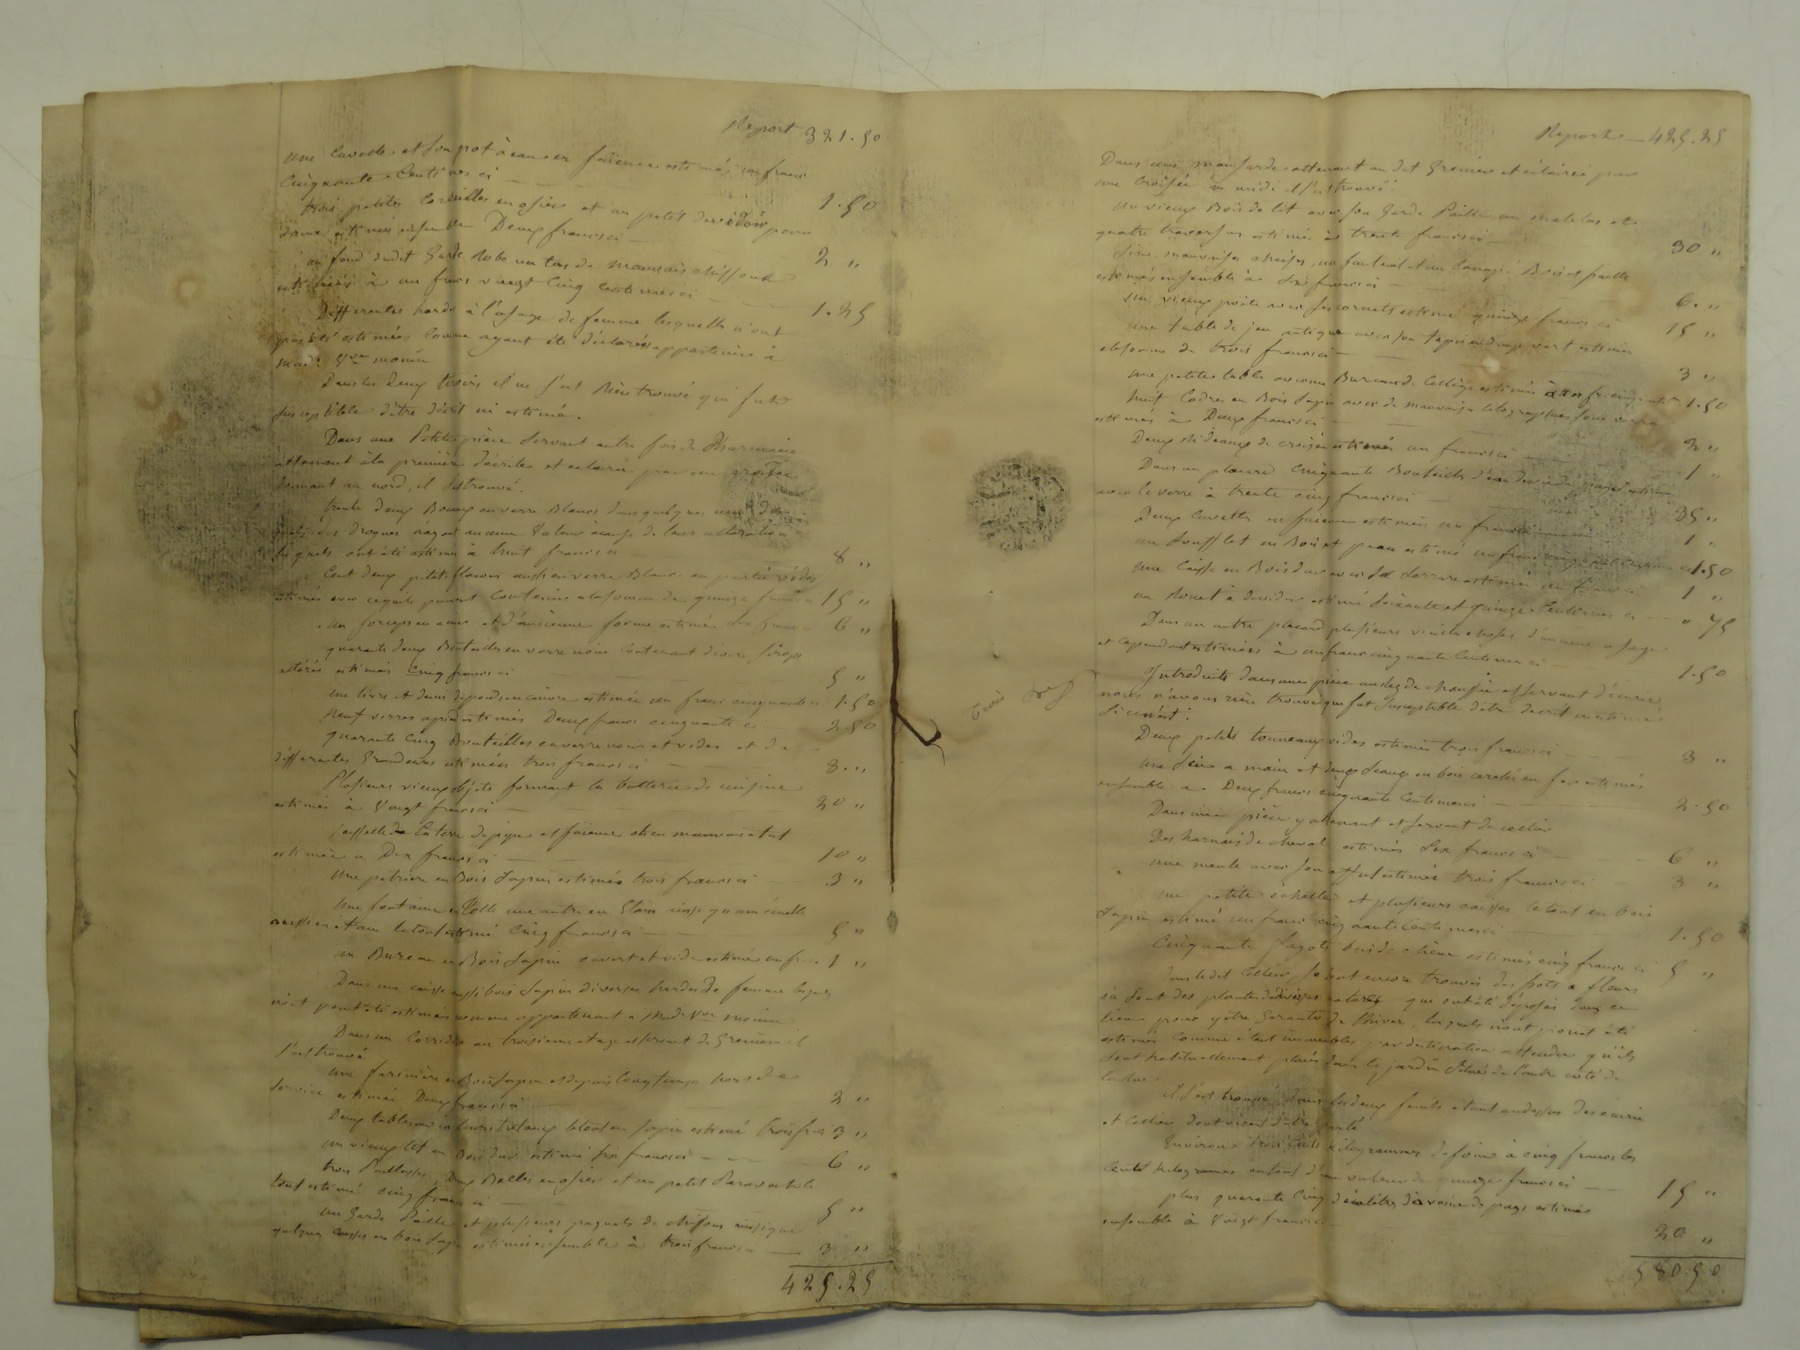 Report 321.50
Une Cuvette et son pot à eau en faïence estimés un franc
Cinquante Centimes ci
1.50
trois petites Corbeilles en osier et un petit devidoir pour
dame estimés ensemble Deux francs ci
2 "
au fond dudit Garde Robe un tas de mauvais chiffons
estimés à un franc vingt Cinq centimes ci
1.25
Differentes hardes à l'usage de femme lesquelles n'ont
pas été estimées comme ayant été déclarées appartenir à
Made Vve monin
Dans les Deux tiroirs il ne s'est Rien trouvé qui fut
susceptible d'être décrit ni estimé.
Dans une Petite pièce servant autre fois de Pharmacie
attenant à la première décrite et éclairée par une croisée
donnant au nord, il s'est trouvé.
trente deux Bocaux en verre Blanc dans quelques uns
des drogues n'ayant aucune Valeur à cause de leur altération
lesquels ont été estimés à huit francs ci
8 "
Cent deux petits flacons aussi en verre Blanc en partie vides
estimés avec ce qu'ils peuvent Contenir a la somme de quinze francs
15 "
et d'ancienne forme estimés six francs
6 "
quarante deux Bouteilles en verre noir Contenant divers Sirops
altérés estimés cinq francs ci
5 "
une livre et demi de poids en cuivre estimée un franc cinquante ci 1.50
Neuf verres à pied estimés Deux francs cinquante ci 2.50
quarante Cinq Bouteilles en verre noir et vides et de
différentes Grandeurs estimées trois francs ci
3 "
Plusieurs vieux objets formant la batterie de cuisine
estimés à Vingt francs ci
20 "
Vaisselle de Terre de pipe et faïence et en mauvais état
estimée a Dix francs ci
10 "
Une petriere en Bois Sapin estimée trois francs ci
3 "
Une fontaine en Tolle une autre en Etain ainsi qu'une écuelle
aussi en étain le tout estimé Cinq francs ci
5 "
un Bureau en Bois Sapin ouvert et vide estimé un franc 1 "
Dans une caisse aussi bois Sapin diverses hardes de femme lesquelles
n'ont point été estimées comme appartenant a Made Vve monin
Dans un Corridor au troisième étage et servant de Grenier il
s'est trouvé
Une farinière en Bois Sapin et depuis longtemps hors de
service estimée Deux francs ci
2 "
Deux tables avec leurs tréteaux le tout en Sapin estimé trois francs 3 "
un vieux lit en Bois dur estimé six francs ci
6 "
trois Paillasses, Deux Balles en osier et un petit Paravent le
tout estimé cinq francs ci
5 "
un Garde Paille et plusieurs paquets de chifons ainsi que
quelques caisses en bois Sapin estimés ensemble à trois francs ci
3 "
425.25
trois
Report 425.25
Dans une mansarde attenant au dit Grenier et éclairée par
une croisée au midi il s'est trouvé:
un vieux Bois de lit avec son Garde Paille un matelas et
quatre traversins estimés à trente francs ci
30 "
Six mauvaises chaises, un fauteuil et un Canapé Bois et paille
estimés ensemble à Six francs ci
6. "
un vieux poële avec ses cornets estimé quinze francs ci
15 "
Une table de jeu antique avec son tapis en drap vert estimée
a la somme de trois francs ci
3 "
une petite table avec un Bureau de Collège estimés à un franc cinquante 1.50
huit Cadres en Bois Sapin avec de mauvaises litographies sous verre
estimés à Deux francs ci
2 "
Deux Rideaux de croisée estimés un franc ci
1 "
Dans un placard Cinquante Bouteilles d'eau de vie de estimées
avec le verre à trente cinq francs ci
35 "
Deux Cuvettes en faïence estimées un franc
1 "
un Soufflet en Bois et peau estimé un franc cinquante centimes ci 1.50
Une Caisse en Bois dur avec sa serrure estimée un franc ci
1 "
un Rouet a devider estimé Soixante et quinze Centimes ci " 75
Dans un autre placard plusieurs vieilles choses d'aucun usage
et cependant estimées à un franc cinquante Centimes ci
1.50
Introduits dans une pièce au rez de chaussée et servant d'écurie
nous n'avons rien trouvé qui fut susceptible d'être décrit ni estimé
si ce n'est:
Deux petits tonneaux vides estimés trois francs ci
3 "
une Scie a main et deux Seaux en bois cerclés en fer estimés
ensemble a Deux francs cinquante Centimes ci
2.50
Dans une pièce y attenant et servant de cellier
Des harnais de cheval estimés Six francs ci
6 "
une meule avec son affut estimée trois francs ci
3 "
une petite échelle et plusieurs caisses le tout en bois
Sapin estimé un franc cinquante Centimes ci
1.50
Cinquante fagots estimés cinq francs ci
5 "
Dans le dit Cellier se sont encore trouvés des pots a fleurs
où sont des plantes diverses qui ont été déposés dans ce
lieu pour y être Garantis de l'hiver, lesquels n'ont point été
estimés comme étant immeubles par destination attendu qu'ils
sont habituellement placés dans le jardin situé de l'autre coté de
la rue.
Il s'est trouvé dans les deux fenils étant audessus des écurie
et Cellier dont vient d'être parlé
Environ trois Cents Kilogrammes de foin à cinq francs les
Cent Kilogrammes en tout d'une valeur de quinze francs ci
15 "
plus quarante Cinq décalitres d'avoine du pays estimés
ensemble à Vingt francs ci
20 "
580.50